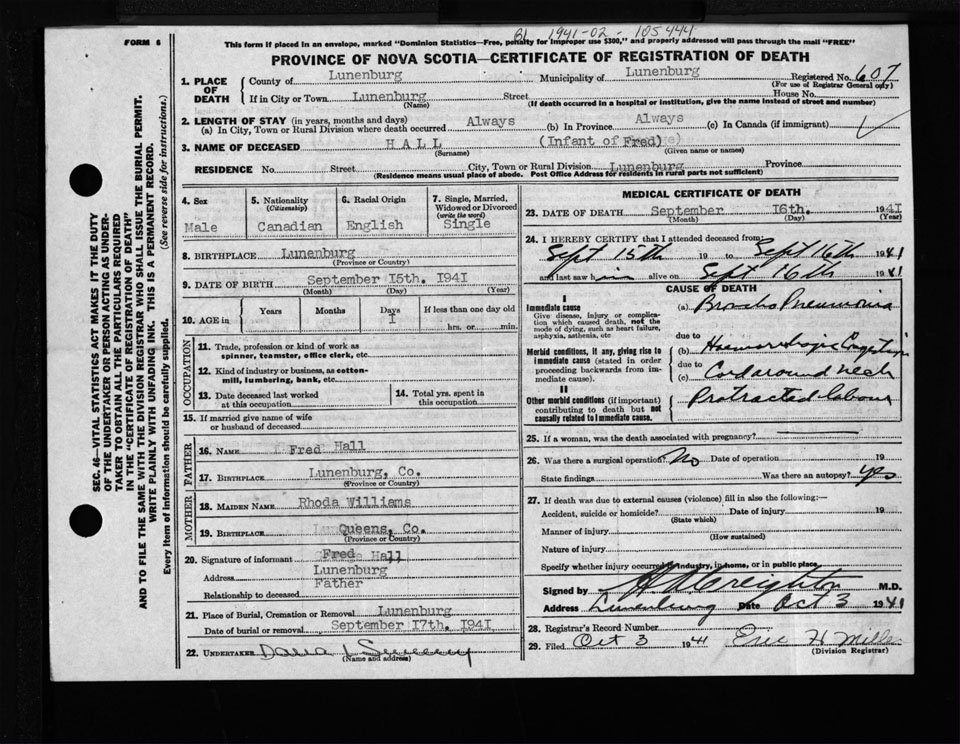 1941-02-105444
FORM 6
This form if placed in an envelope, marked "Dominion Statistics—Free, penalty for improper use $300," and properly addressed will pass through the mail "FREE"
PROVINCE OF NOVA SCOTIA—CERTIFICATE OF REGISTRATION OF DEATH
1. PLACE OF DEATH County of Lunenburg Municipality of Lunenburg Registered No. 607
(For use of Registrar General only)
If in City or Town Lunenburg Street House No.
(Name) (If death occurred in a hospital or institution, give the name instead of street and number)
2. LENGTH OF STAY (in years, months and days)
(a) In City, Town or Rural Division where death occurred Always (b) In Province Always (c) In Canada (if immigrant)
3. NAME OF DECEASED HALL (Infant of Fred)
(Surname) (Given name or names)
RESIDENCE No. Street City, Town or Rural Division Lunenburg Province
(Residence means usual place of abode. Post Office Address for residents in rural parts not sufficient)
4. Sex Male
5. Nationality (Citizenship) Canadian
6. Racial Origin English
7. Single, Married, Widowed or Divorced (write the word) Single
8. BIRTHPLACE Lunenburg
(Province or Country)
9. DATE OF BIRTH September 15th. 1941
(Month) (Day) (Year)
10. AGE in Years Months Days 1 If less than one day old hrs. or min.
OCCUPATION
11. Trade, profession or kind of work as spinner, teamster, office clerk, etc.
12. Kind of industry or business, as cotton-mill, lumbering, bank, etc.
13. Date deceased last worked at this occupation
14. Total yrs. spent in this occupation
15. If married give name of wife or husband of deceased
FATHER
16. NAME Fred Hall
17. BIRTHPLACE Lunenburg, Co.
(Province or Country)
MOTHER
18. MAIDEN NAME Rhoda Williams
19. BIRTHPLACE Queens, Co.
(Province or Country)
20. Signature of informant Fred Hall
Address Lunenburg
Relationship to deceased Father
21. Place of Burial, Cremation or Removal Lunenburg
Date of burial or removal September 17th. 1941
22. UNDERTAKER
(Name and address)
MEDICAL CERTIFICATE OF DEATH
23. DATE OF DEATH September 16th. 1941
(Month) (Day) (Year)
24. I HEREBY CERTIFY that I attended deceased from:
Sept 15th 19 to Sept 16th 1941
and last saw him alive on Sept 16th 1941
CAUSE OF DEATH
I
Immediate cause
Give disease, injury or complication which caused death, not the mode of dying, such as heart failure, asphyxia, asthenia, etc
(a) Broncho Pneumonia
due to
Morbid conditions, if any, giving rise to immediate cause (stated in order proceeding backwards from immediate cause).
(b)
due to
(c) Cord around neck
II
Other morbid conditions (if important) contributing to death but not causally related to immediate cause.
Protracted labour
25. If a woman, was the death associated with pregnancy?
26. Was there a surgical operation? No Date of operation 19
State findings Was there an autopsy? yes
27. If death was due to external causes (violence) fill in also the following:—
Accident, suicide or homicide? Date of injury 19
(State which)
Manner of injury
(How sustained)
Nature of injury
Specify whether injury occurred in industry, in home, or in public place
Signed by Creighton M.D.
Address Lunenburg Date Oct 3 1941
28. Registrar's Record Number
29. Filed Oct 3 1941 Eric H Miller
(Division Registrar)
SEC. 46—VITAL STATISTICS ACT MAKES IT THE DUTY
OF THE UNDERTAKER OR PERSON ACTING AS UNDER-
TAKER TO OBTAIN ALL THE PARTICULARS REQUIRED
IN THE "CERTIFICATE OF REGISTRATION OF DEATH"
AND TO FILE THE SAME WITH THE DIVISION REGISTRAR WHO SHALL ISSUE THE BURIAL PERMIT.
WRITE PLAINLY WITH UNFADING INK. THIS IS A PERMANENT RECORD.
Every item of information should be carefully supplied. (See reverse side for instructions.)